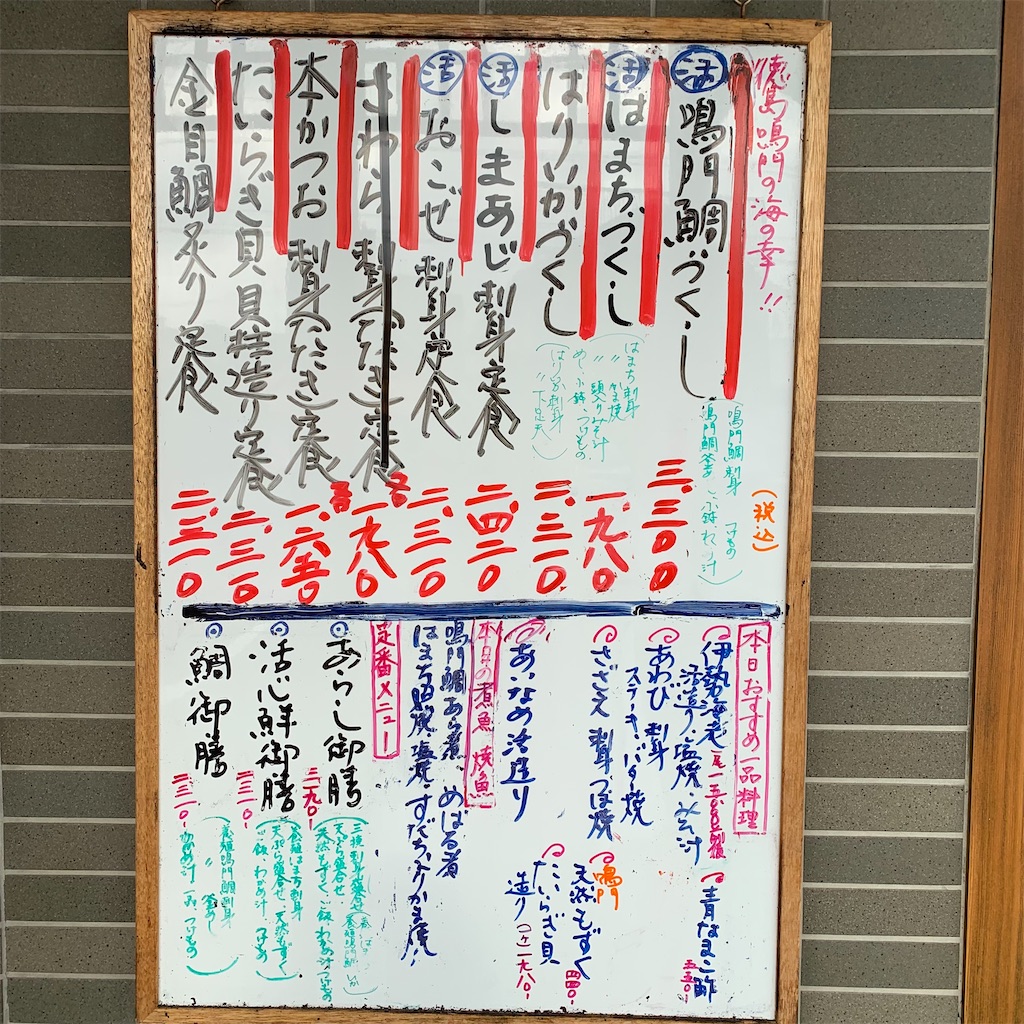 徳島鳴門の海の幸!!
(税込)
活 鳴門鯛づくし
鳴門鯛刺身
つけもの
鳴門鯛釜めし、小鉢、わかめ汁
三、三〇〇
活 はまちづくし
はまち刺身
〃 かま焼
〃 頭入りみそ汁
めし、小鉢、つけもの
一、九八〇
はりいかづくし
はりいか刺身
〃 下足天
二、三一〇
活 しまあじ刺身定食
二、四二〇
活 おこぜ刺身定食
二、三一〇
さわら刺身(たたき)定食
一、九八〇
本かつお刺身(たたき)定食
一、六五〇
たいらぎ貝貝柱造り定食
二、三一〇
金目鯛炙り定食
二、三一〇
本日おすすめ一品料理
伊勢海老
活造り、塩焼、みそ汁
あわび 刺身
ステーキ、バター焼
さざえ 刺身 つぼ焼
あいなめ活造り
青なまこ酢
五五〇-
鳴門
天然もずく
四四〇-
たいらぎ貝
造り(一ケ)一九八〇-
本日の煮魚 焼魚
鳴門鯛あら煮、めばる煮
はまち照焼、塩焼、すだちぶりかま焼、
定番メニュー
あらし御膳
三、一九〇-
三種刺身盛合せ
天ぷら盛合せ
天然もずく、ご飯、わかめ汁、つけもの
活け鮮御膳
二、三一〇-
養殖はまち刺身
天ぷら盛合せ、天然もずく
ご飯、わかめ汁、つけもの
鯛御膳
二、三一〇-
養殖鳴門鯛刺身
〃 釜めし
わかめ汁 つけもの